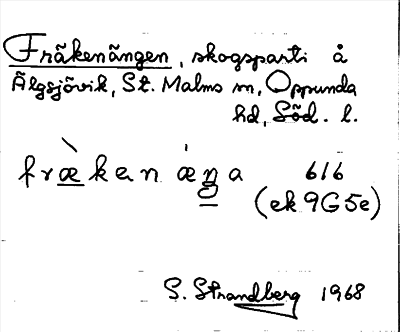 Fräkenängen, skogsparti å
Älgsjövik, St. Malms sn, Oppunda
hd, Söd. l.
fræ̀ken æ̇ŋa 616
(ek 9G5e)
S. Strandberg 1968